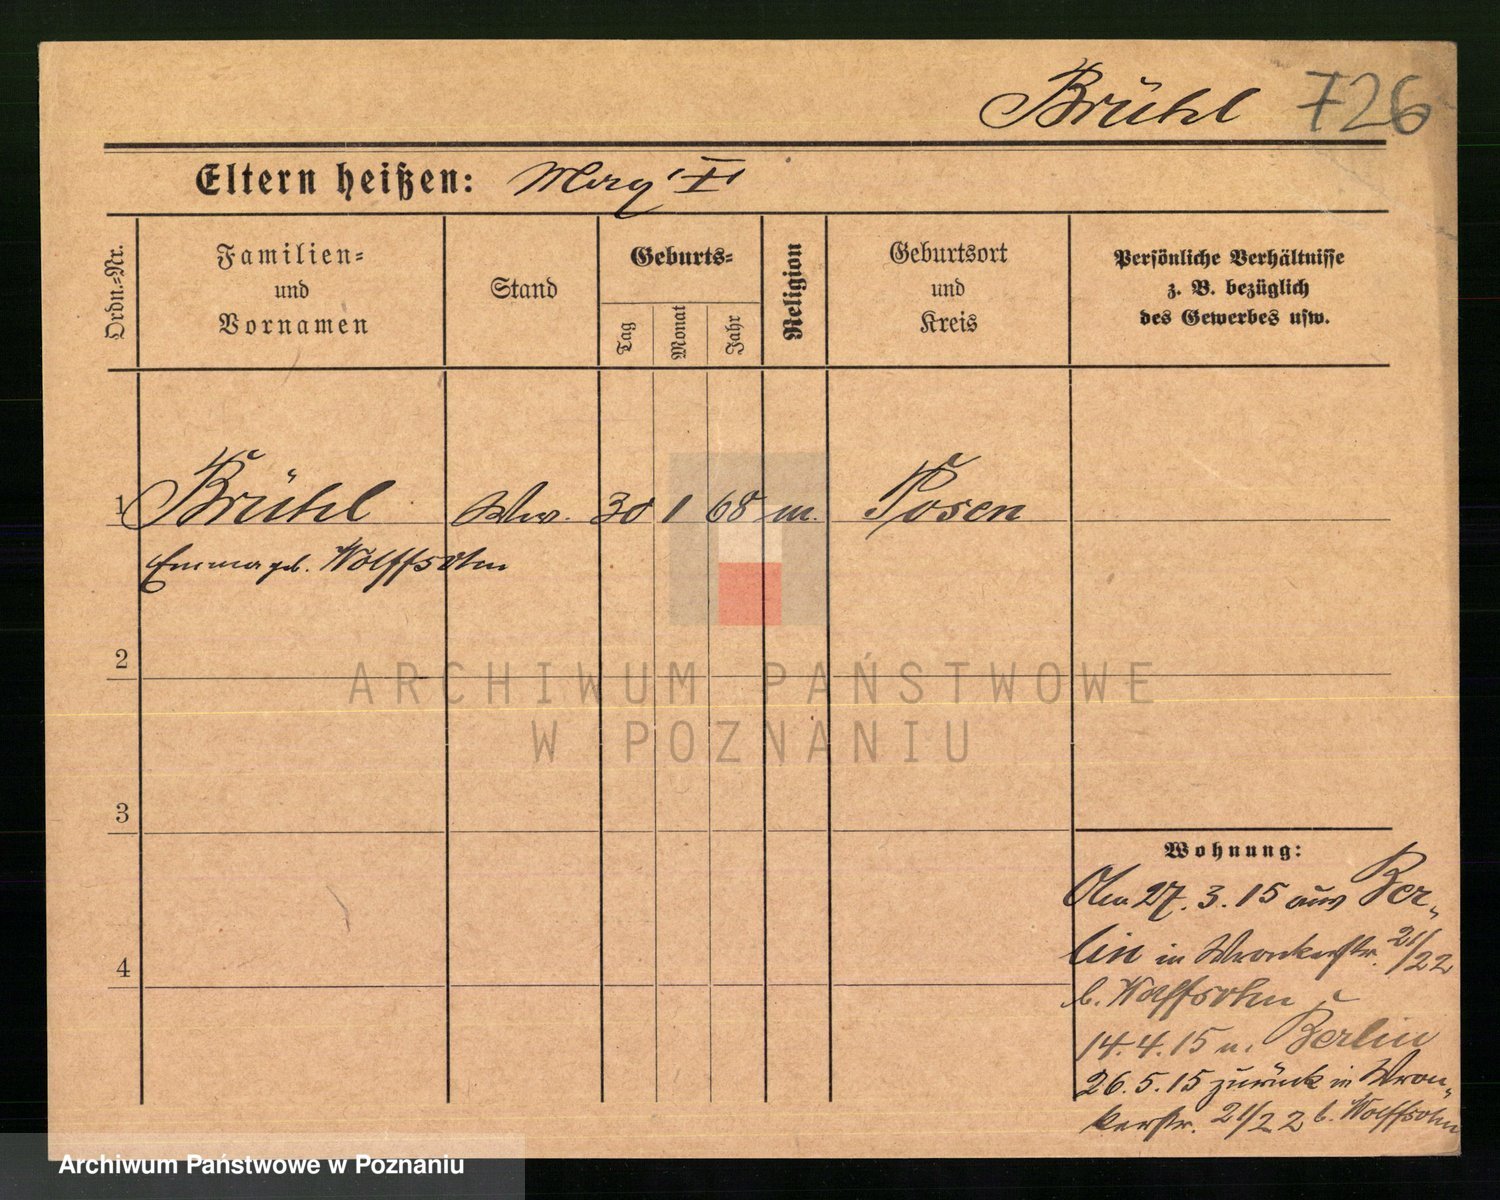 Brühl 726
Eltern heißen:
Ordn.-Nr.
Familien-
und
Vornamen
Stand
Geburts-
Tag
Monat
Jahr
Religion
Geburtsort
und
Kreis
Persönliche Verhältnisse
z. B. bezüglich
des Gewerbes usw.
1 Brühl Ww. 30 1 68 m. Posen
Emma geb. Wolffsohn
2
ARCHIWUM PAŃSTWOWE
W POZNANIU
3
4
Wohnung:
27. 3. 15 aus Ber-
lin in Wronkerstr. 21/22
b. Wolffsohn
14. 4. 15 n. Berlin
26. 5. 15 zurück in Wron-
kerstr. 21/22 b. Wolffsohn
Archiwum Państwowe w Poznaniu